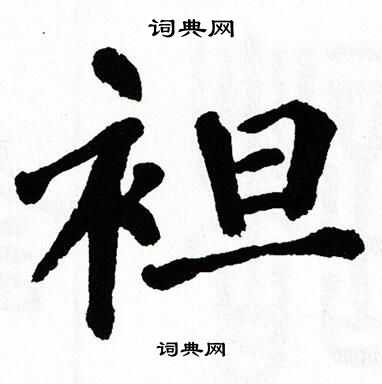 词典网
袒
词典网